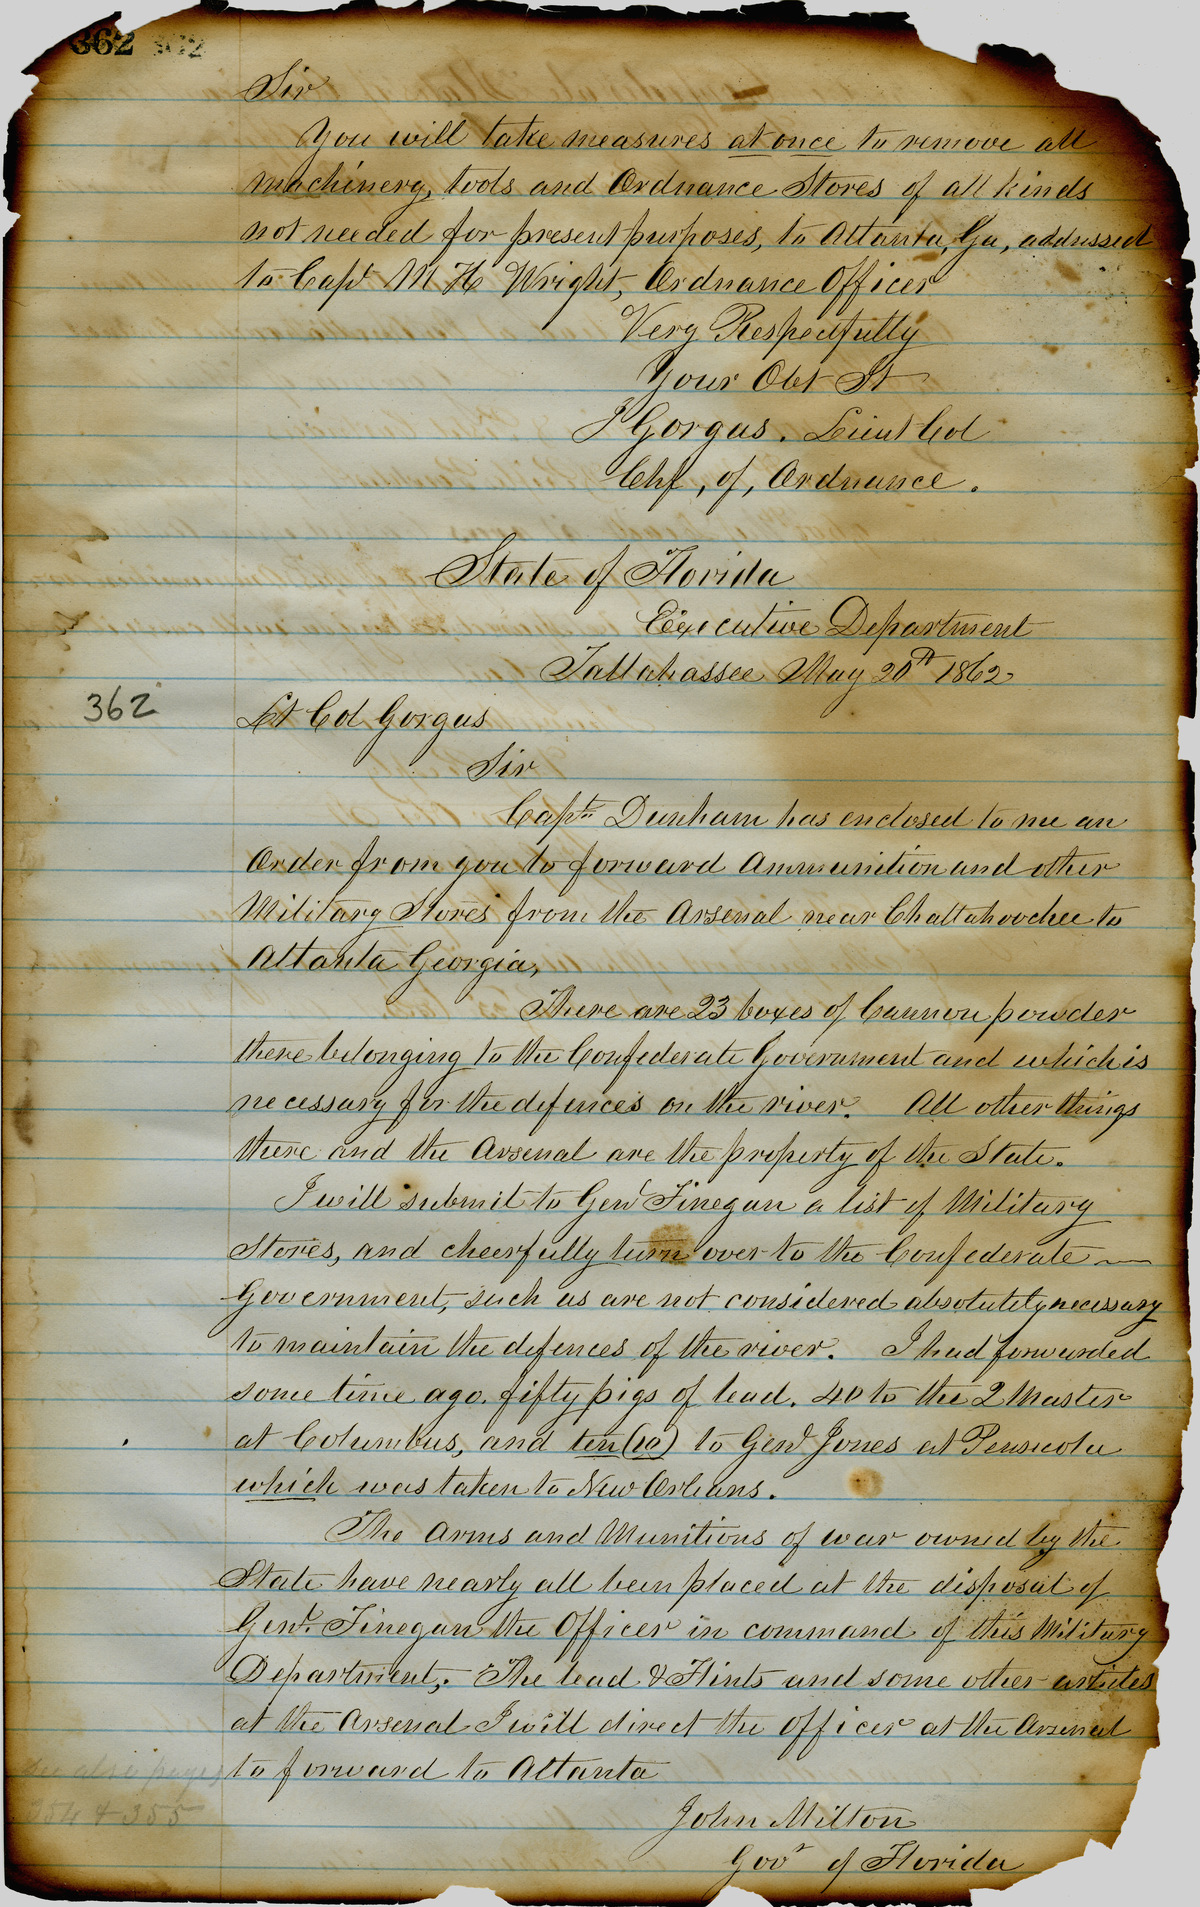 362 362
Sir
You will take measures at once to remove all
machinery, tools and Ordnance Stores of all kinds
not needed for present purposes, to Atlanta, Ga, addressed
to Capt M H Wright, Ordnance Officer
Very Respectfully
Your Obt St
J Gorgas. Lieut Col
Chf, of, Ordnance.
State of Florida
Executive Department
Tallahassee May 20th 1862
362
Lt Col Gorgas
Sir
Captn Dunham has enclosed to me an
Order from you to forward Ammunition and other
Military Stores from the Arsenal near Chattahoochee to
Atlanta Georgia,
There are 23 boxes of Cannon powder
there belonging to the Confederate Government and which is
necessary for the defences on the river. All other things
there and the Arsenal are the property of the State.
I will submit to Genl Finegan a list of Military
Stores, and cheerfully turn over to the Confederate
Government, such as are not considered absolutely necessary
to maintain the defences of the river. I had forwarded
some time ago. fifty pigs of lead. 40 to the Q Master
at Columbus, and ten (10) to Genl Jones at Pensicola
which was taken to New Orleans.
The Arms and Munitions of war owned by the
State have nearly all been placed at the disposal of
Genl. Finegan the Officer in command of this Military
Department,. The lead & Flints and some other articles
at the Arsenal I will direct the officer at the Arsenal
to forward to Atlanta
see also pages
354 & 355
John Milton
Govr of Florida